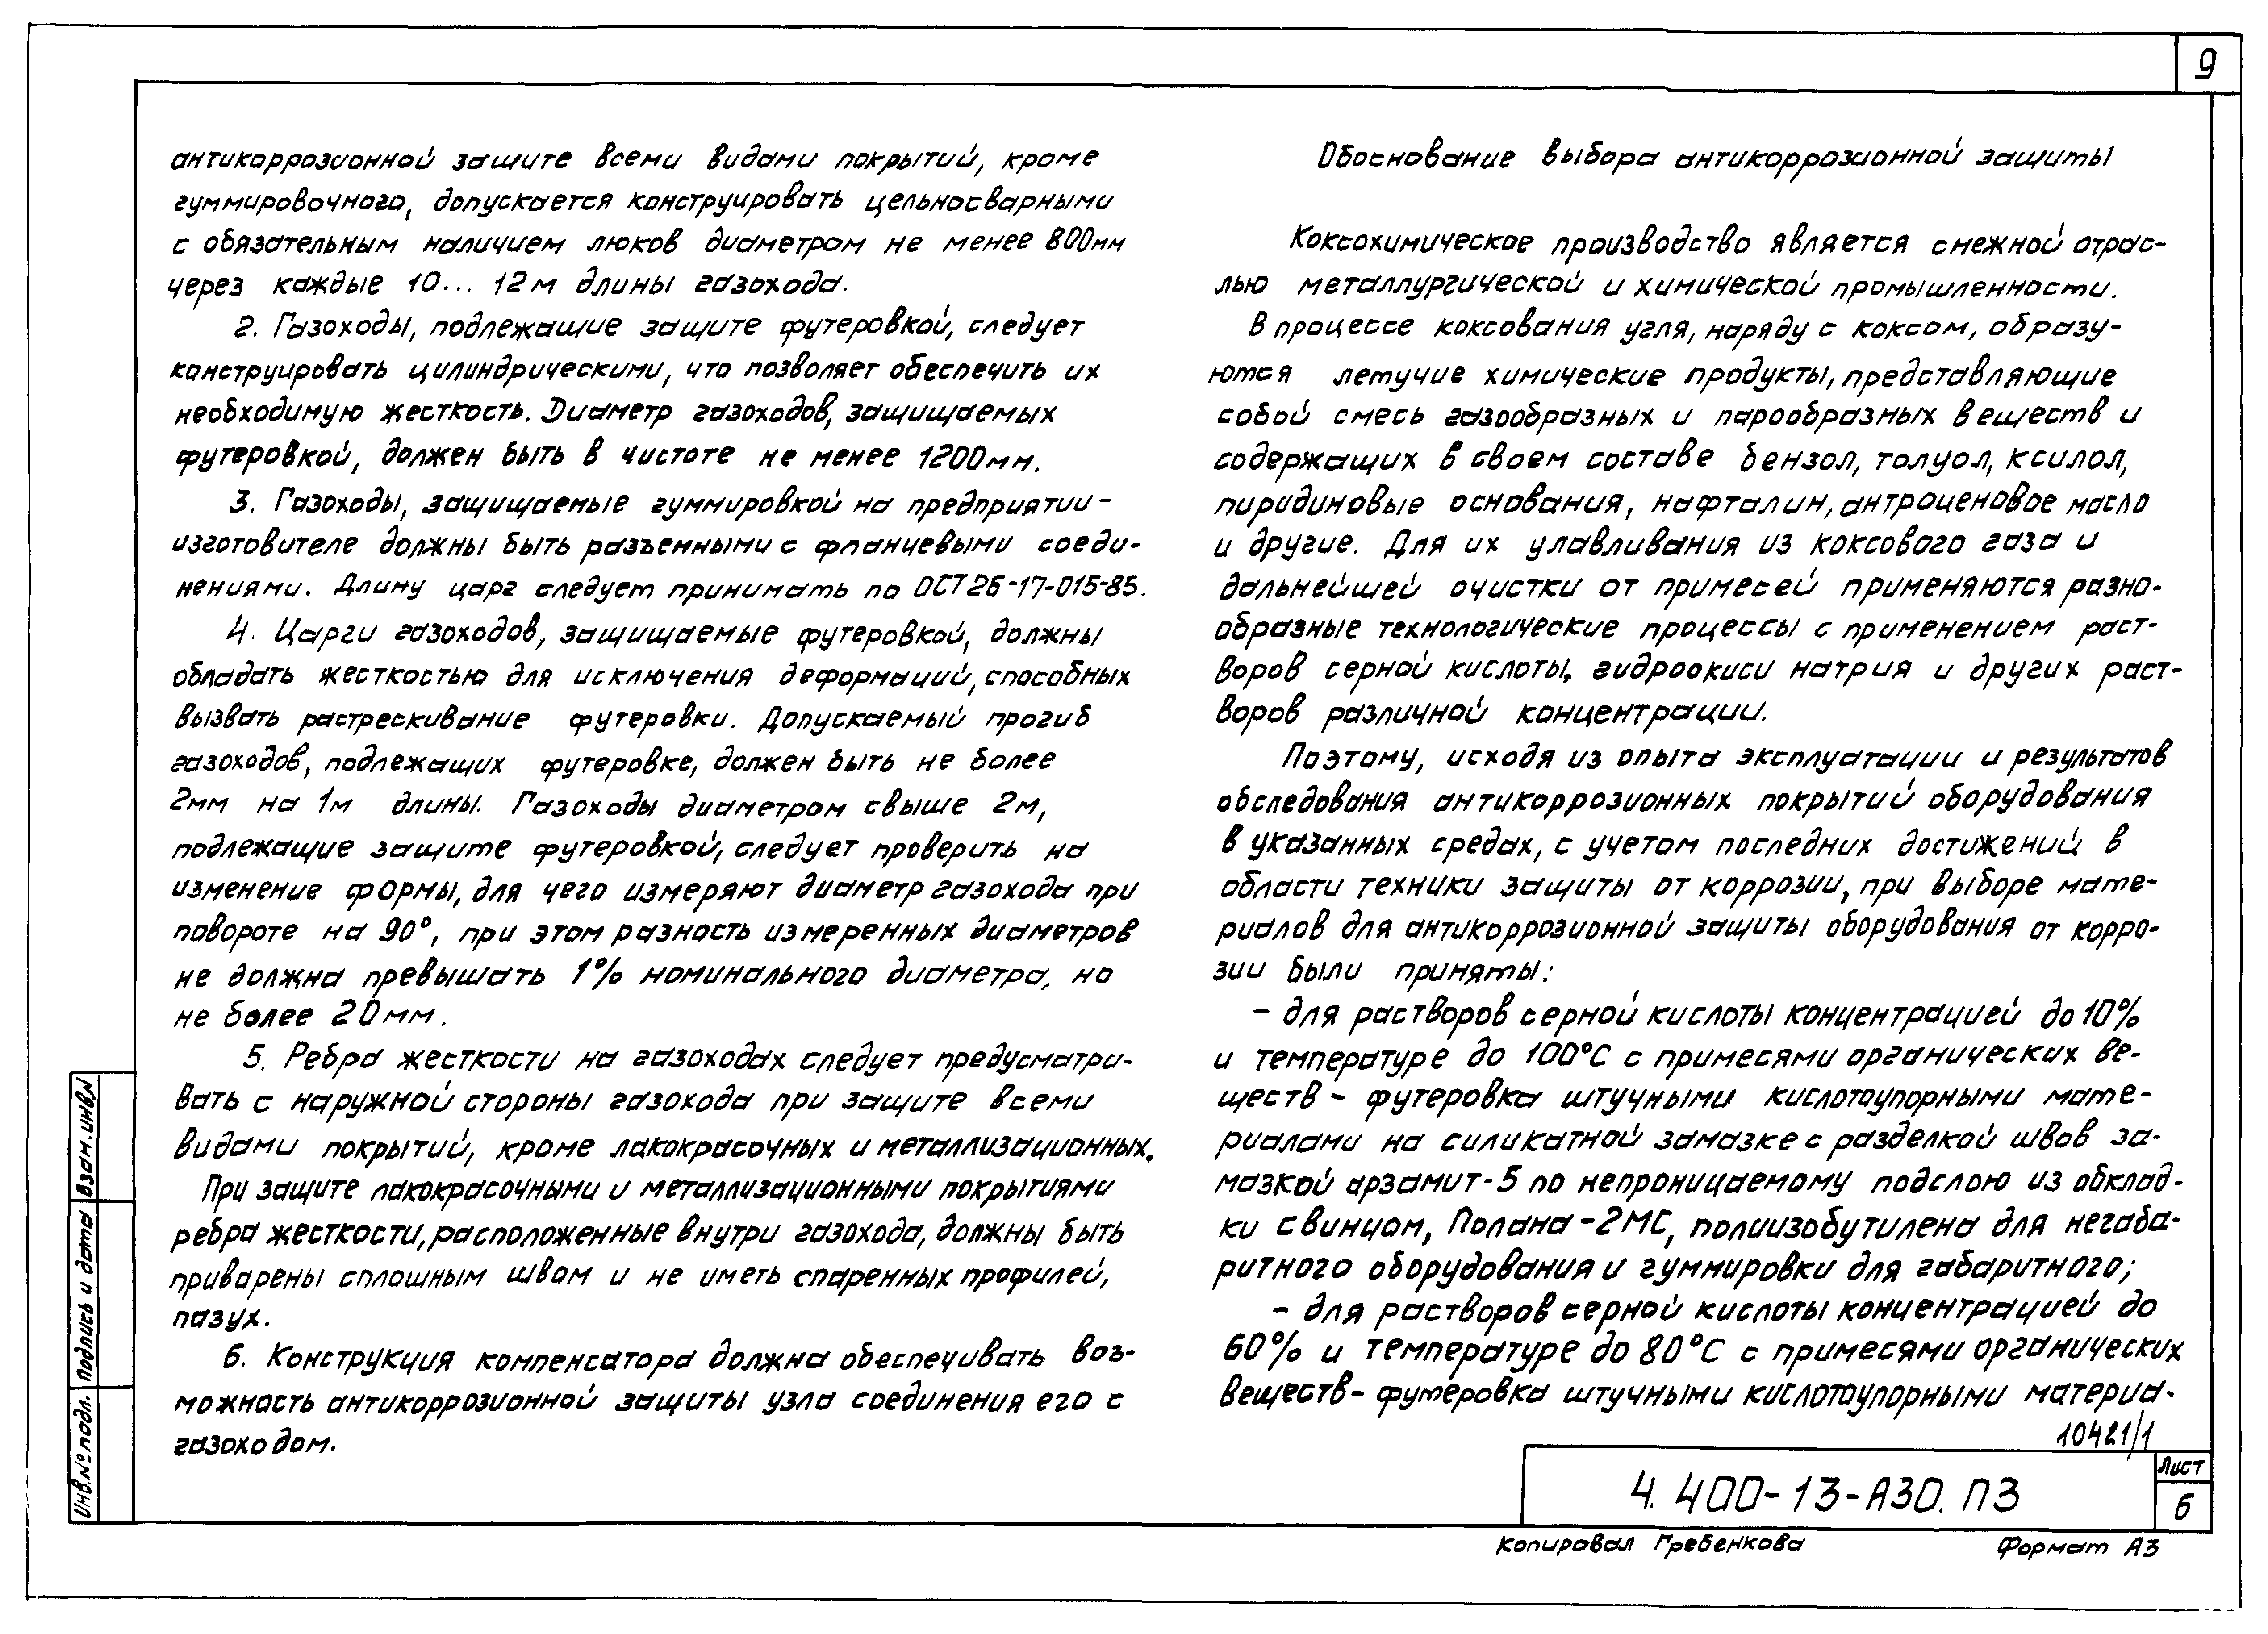 9
антикоррозионной защите всеми видами покрытий, кроме
гуммировочного, допускается конструировать цельносварными
с обязательным наличием люков диаметром не менее 800мм
через каждые 10... 12м длины газохода.
2. Газоходы, подлежащие защите футеровкой, следует
конструировать цилиндрическими, что позволяет обеспечить их
необходимую жесткость. Диаметр газоходов, защищаемых
футеровкой, должен быть в чистоте не менее 1200мм.
3. Газоходы, защищаемые гуммировкой на предприятии-
изготовителе должны быть разъемными с фланцевыми соеди-
нениями. Длину царг следует принимать по ОСТ 26-17-015-85.
4. Царги газоходов, защищаемые футеровкой, должны
обладать жесткостью для исключения деформаций, способных
вызвать растрескивание футеровки. Допускаемый прогиб
газоходов, подлежащих футеровке, должен быть не более
2мм на 1м длины. Газоходы диаметром свыше 2м,
подлежащие защите футеровкой, следует проверить на
изменение формы, для чего измеряют диаметр газохода при
повороте на 90°, при этом разность измеренных диаметров
не должна превышать 1% номинального диаметра, но
не более 20мм.
5. Ребра жесткости на газоходах следует предусматри-
вать с наружной стороны газохода при защите всеми
видами покрытий, кроме лакокрасочных и металлизационных.
При защите лакокрасочными и металлизационными покрытиями
ребра жесткости, расположенные внутри газохода, должны быть
приварены сплошным швом и не иметь спаренных профилей,
пазух.
6. Конструкция компенсатора должна обеспечивать воз-
можность антикоррозионной защиты узла соединения его с
газоходом.
Обоснование выбора антикоррозионной защиты
Коксохимическое производство является смежной отрас-
лью металлургической и химической промышленности.
В процессе коксования угля, наряду с коксом, образу-
ются летучие химические продукты, представляющие
собой смесь газообразных и парообразных веществ и
содержащих в своем составе бензол, толуол, ксилол,
пиридиновые основания, нафталин, антраценовое масло
и другие. Для их улавливания из коксового газа и
дальнейшей очистки от примесей применяются разно-
образные технологические процессы с применением раст-
воров серной кислоты, гидроокиси натрия и других раст-
воров различной концентрации.
Поэтому, исходя из опыта эксплуатации и результатов
обследования антикоррозионных покрытий оборудования
в указанных средах, с учетом последних достижений в
области техники защиты от коррозии, при выборе мате-
риалов для антикоррозионной защиты оборудования от корро-
зии были приняты:
- для растворов серной кислоты концентрацией до 10%
и температуре до 100°С с примесями органических ве-
ществ - футеровка штучными кислотоупорными мате-
риалами на силикатной замазке с разделкой швов за-
мазкой арзамит-5 по непроницаемому подслою из обклад-
ки свинцом, Полана-2МС, полиизобутилена для негаба-
ритного оборудования и гуммировки для габаритного;
- для растворов серной кислоты концентрацией до
60% и температуре до 80°С с примесями органических
веществ - футеровка штучными кислотоупорными материа-
10421/1
4.400-13-АЗО.ПЗ
Лист
6
Копировал Гребенкова Формат А3
Взам.инв.№
Подпись и дата
Инв.№подл.